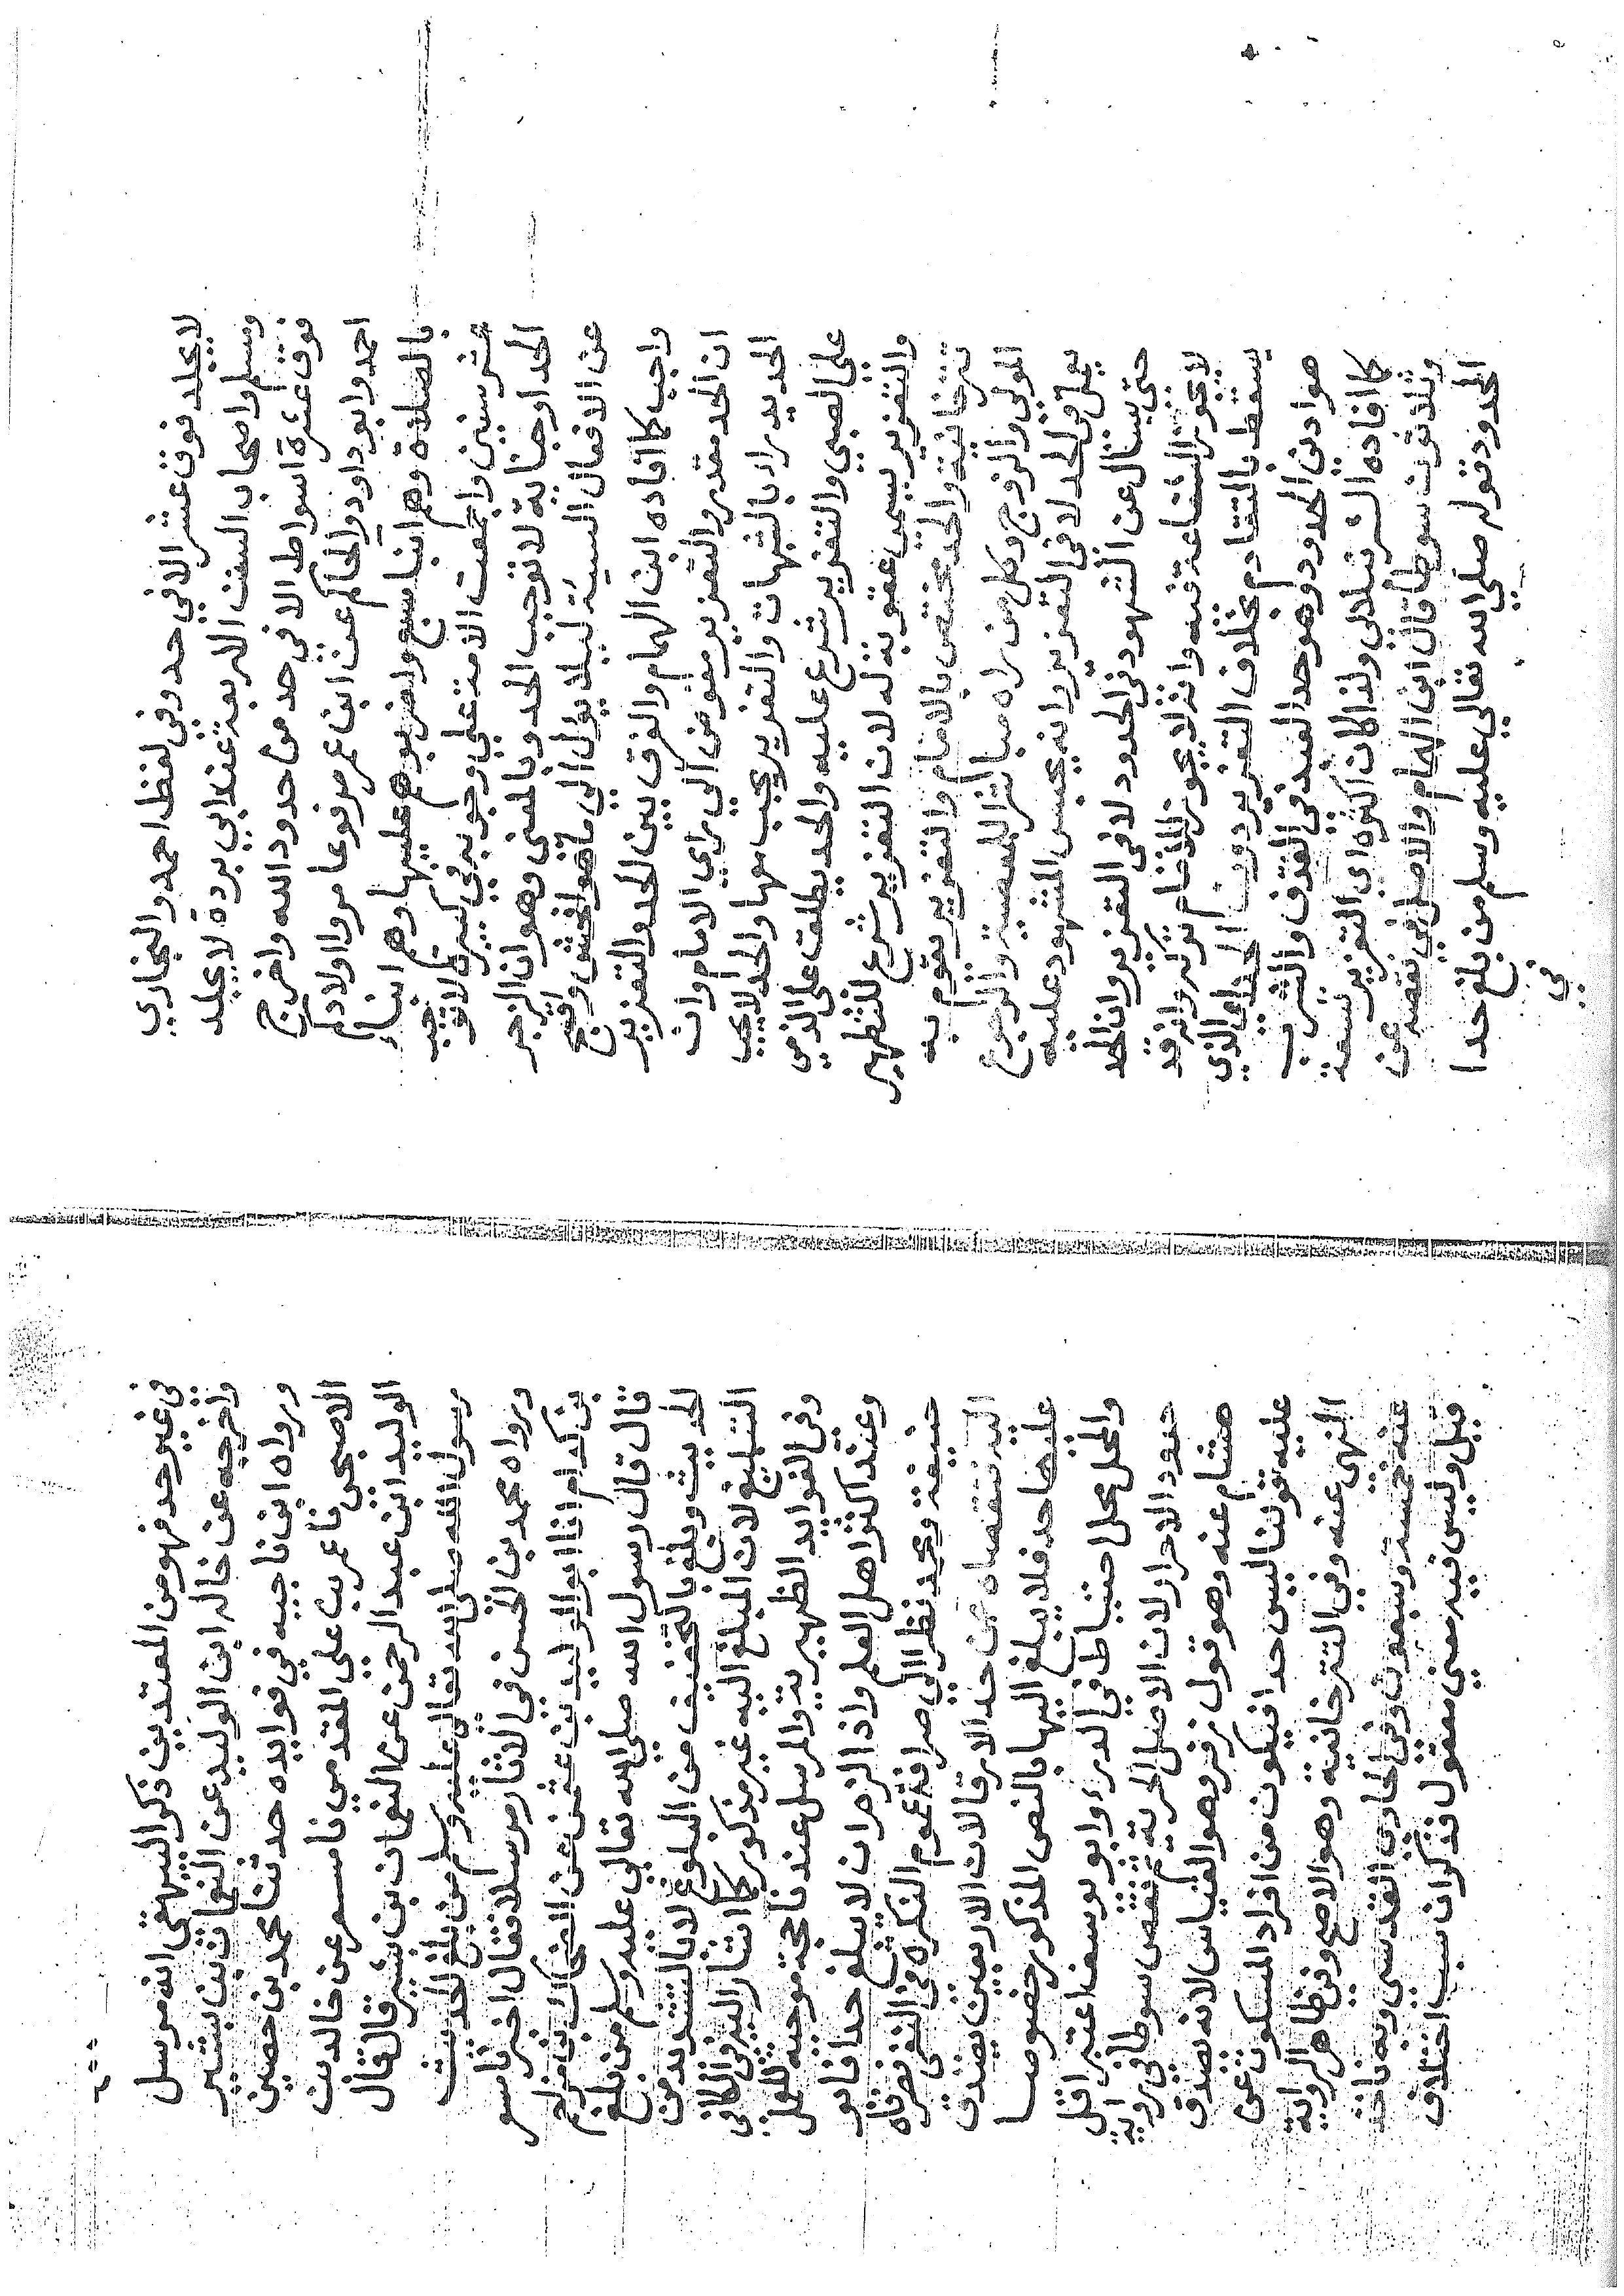 لا يجلد فوق عشر الا في حد وفي لفظ احمد والبخاري
وسلم واصحاب السنن الاربعة عند ابي بردة لا يجلد
فوق عشرة اسواط الا في حد من حدود الله واخرج
احمد وابو داود والحاكم عن ابن عمر مرفوعا مروا اولادكم
بالصلاة وهم ابنا سبع واضربوهم عليها وهم ابناء
عشر سنين واجمعت الامة على وجوبه في كبيرة لا توجب
الحد او جناية لا توجب الحد وبالمعنى وهو ان الزجر
عن الافعال السيئة ليلا يول الي ما هو افحش واقبح
واجب كما افاده ابن الهمام والفرق بين الحد والتعزير
ان الحد مقدر والتعزير مفوض الي راي الامام وان
الحد يدرا بالشبهات والتعزير يجب معها والحد لا يجب
على الصبي والتعزير شرع عليه والحد يطلق على الذمي
والتعزير يسمى عقوبة له لان التعزير شرع للتطهير
تترخانيه والحد مختص بالامام والتعزير يقوم به
المولى والزوج وكل من راه مباشر المعصية والرجوع
يعمل في الحد لا في التعزير وانه يحبس المشهود عليه
حتى يسال عن الشهود في الحدود لا في التعزير وان الحد
لا تجوز الشفاعة فيه وانه لا يجوز للامام تركه وانه قد
يسقط بالتقادم بخلاف التعزير دون الحد اي الذي
هو ادنى الحدود وهو حد العبد في القذف والشرب
كما افاده الشرنبلالي ولذا كان اكثره اي التعزير تسعة
وثلاثون سوطا قال ابن الهمام والاصل في نقصه عن
الحدود قوله صلي الله تعالي عليه وسلم من بلغ حدا
في
في غير حد فهو من المعتدين ذكر البيهقي انه مرسل
واخرجه عن خاله ابن الوليد عن النعمان بن بشير
ورواه ابن ناجيه في فوايده حدثنا محمد بن حصين
الاصبحي نا عمر بن علي المقدمي نا مسعر عن خالد بن
الوليد ابن عبد الرحمن عن النعمان بن بشير قال قال
رسول الله صلى الله تعالي عليه وسلم من بلغ الحديث
ورواه محمد بن الحسن في الاثار مرسلا فقال اخبرنا مسعر
بن كدام انا ابو الوليد بن عثمن عن الضحاك بن مزاحم
قال قال رسول الله صلي الله تعالي عليه وسلم من بلغ
الحديث وبلغ بالتخفيف من البلوغ لا بالتشديد من
التبليغ لان المبلغ اليه غير مذكور كما اشار اليه في الكافي
وفي الفوايد الظهيرية والمرسل عندنا حجة موجبه للعمل
وعند اكثر اهل العلم واذا لزم ان لا يبلغ حدا فابو
حنيفة ومحمد نظرا الي صرافة عموم النكره في النفي فصرفاه
اليه فنقصاه عن حد الارقا لان الاربعين يصدق
عليها حد فلا يبلغ اليها بالنص المذكور خصوصا
والمحل محل احتياط في الدرء وابو يوسف اعتبر اقل
حدود الاحرار لان الاصل الحرية فنقص سوطا في رواية
هشام عنه وهو قول زفر وهو القياس لانه يصدق
عليه قولنا ليس حدا فيكون من افراد المسكوت عن
النهي عنه وفي التترخانية وهو الاصح وفي ظاهر الرواية
عنه خمسة وسبعون وفي الحاوي القدسي وبه ناخذ
قيل وليس فيه معني معقول فذكر ان سبب اختلاف